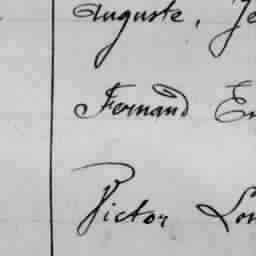 Auguste, Je
Fernand En
Victor Lou